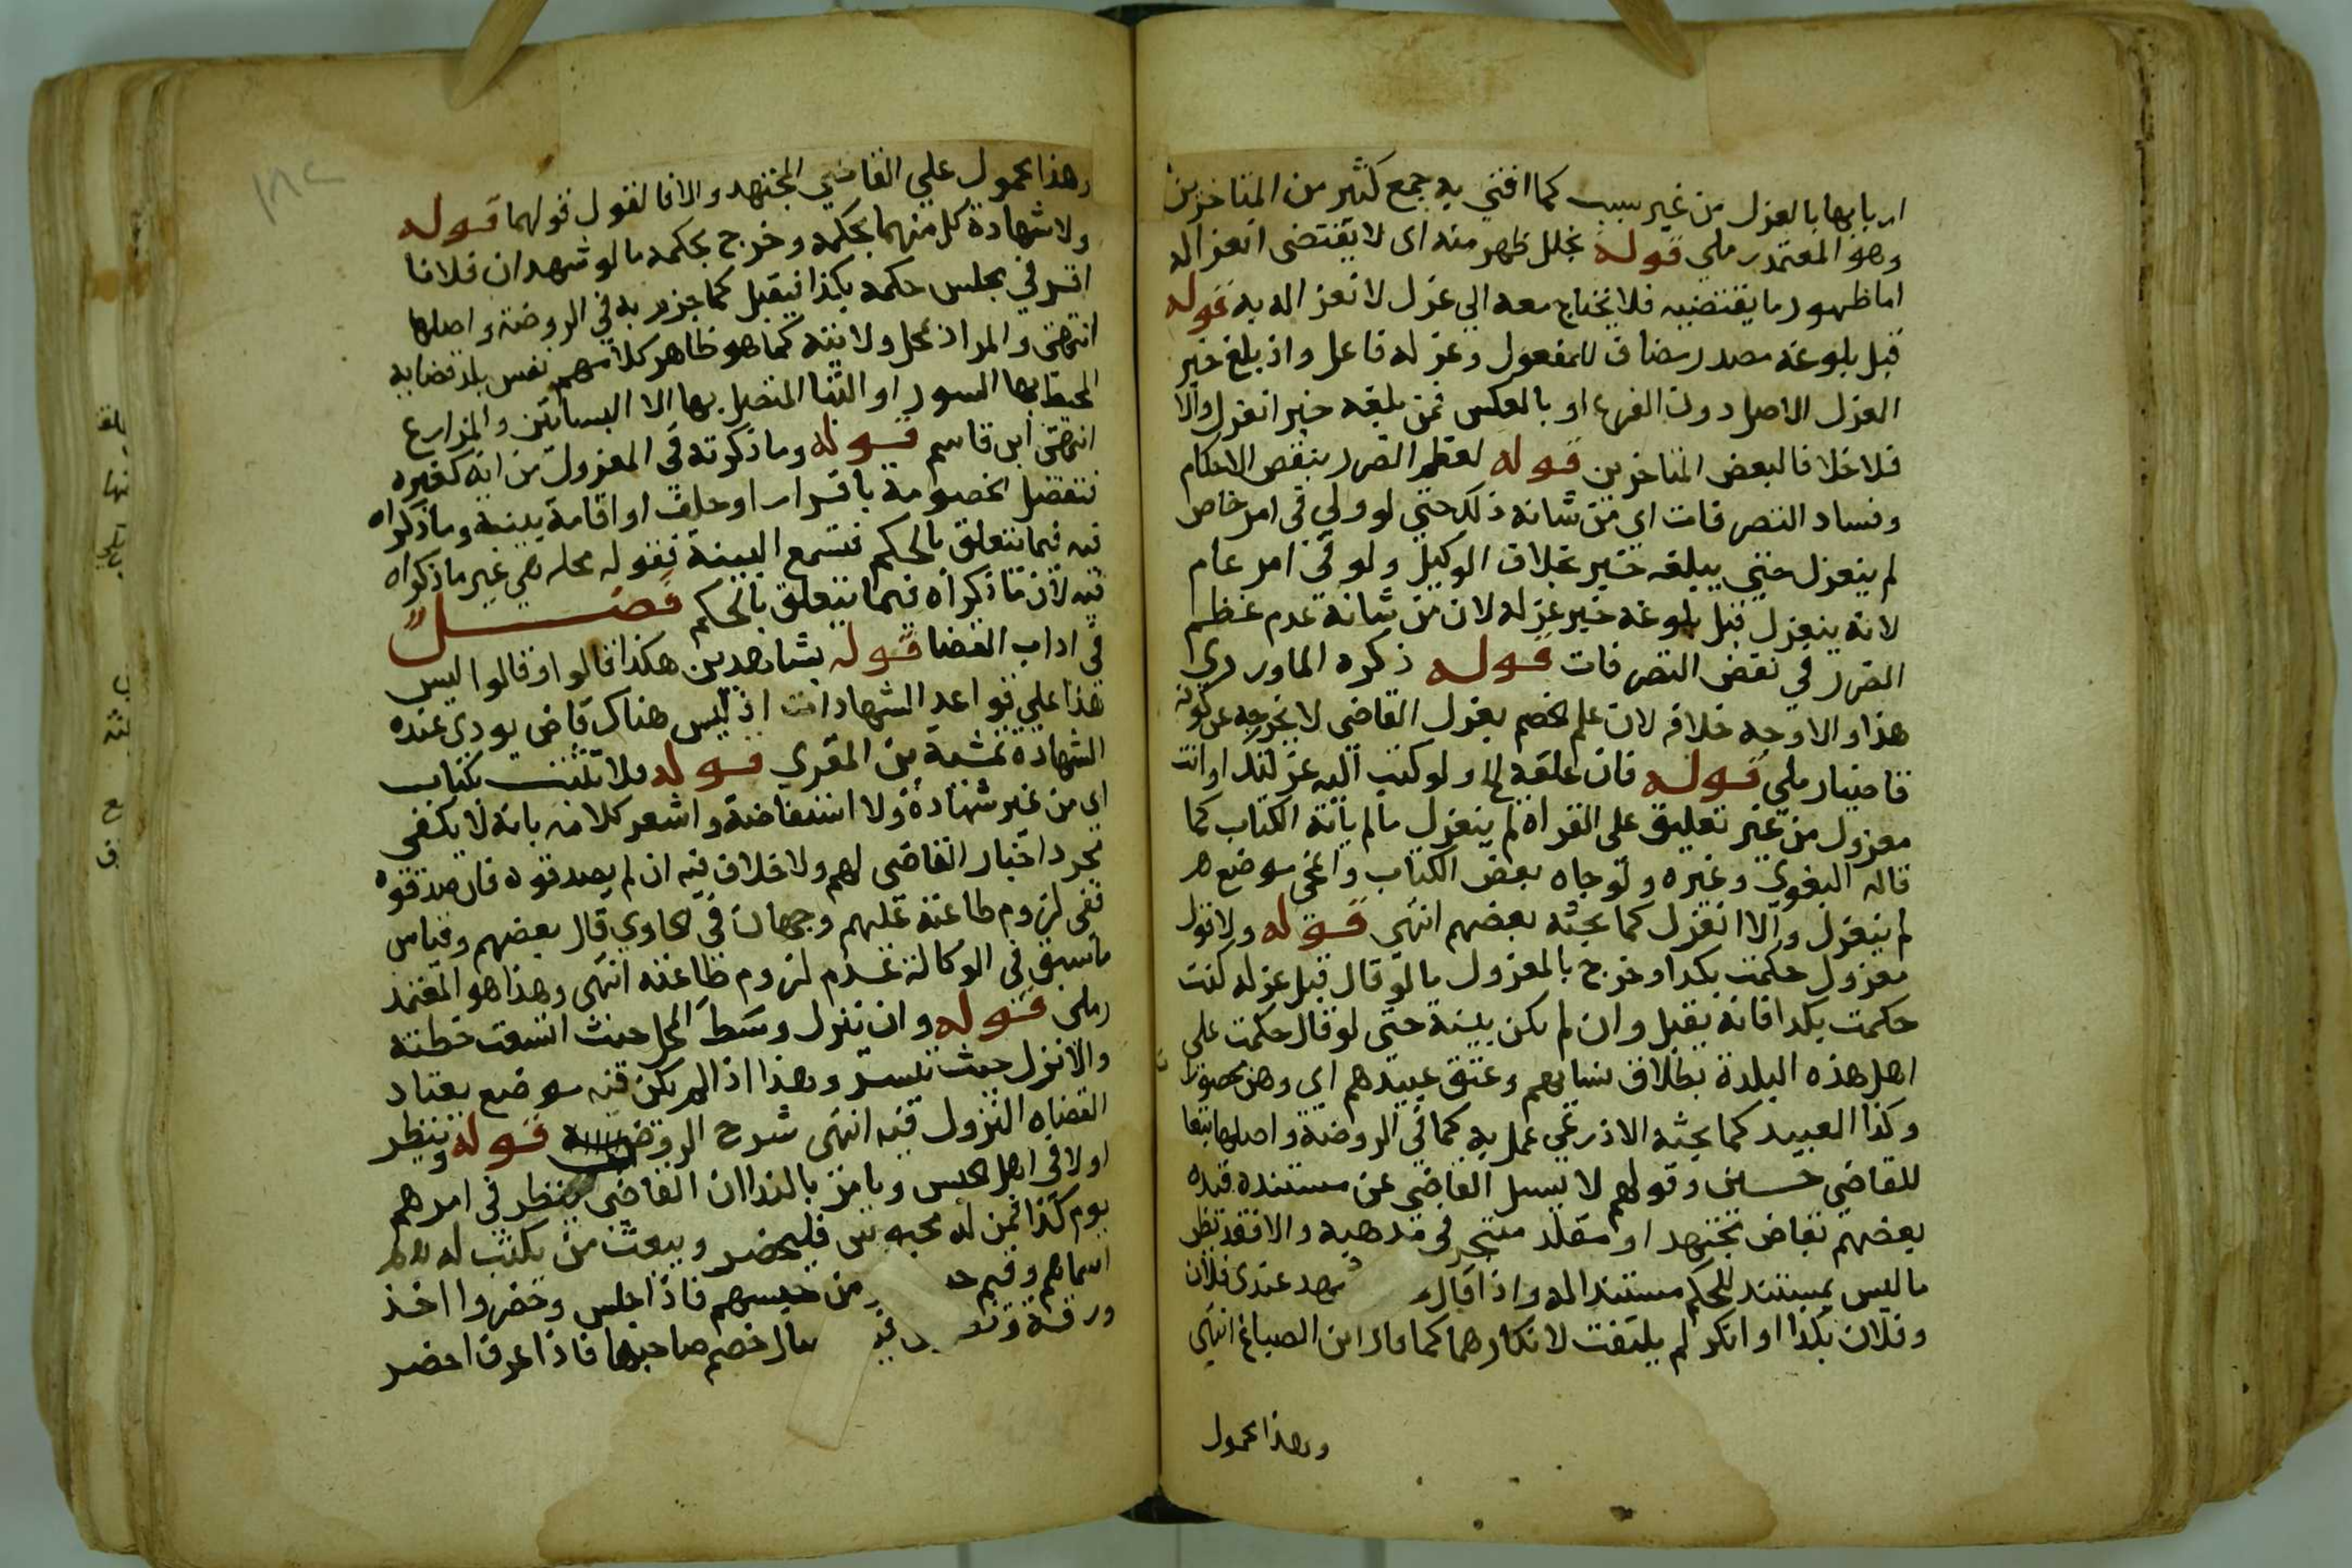 اربابها بالعزل من غير سبب كما افتي به جمع كثير من المتاخرين
وهو المعتمد رملي قوله بخلل ظهر منه اى لا يقتضى انعزاله
اما ظهور ما يقتضيه فلا يحتاج معه الي عزل لانعزاله به قوله
قبل بلوغه مصدر مضاف للمفعول وعزله فاعل واذ بلغ خبر
العزل الاصل دون الفرع او بالعكس فمن بلغه خبر انعزل والا
فلا خلافا لبعض المتاخرين قوله لعظم الضرر بنقض الاحكام
وفساد التصرفات اي من شانه ذلك حتي لو ولي في امر خاص
لم ينعزل حتي يبلغه خبر بخلاف الوكيل ولو في امر عام
لانه ينعزل قبل بلوغه خبر عزله لان من شانه عدم عظم
الضرر في نقض التصرفات قوله ذكره الماوردي
هذا والاوجه خلافه لان علم الخصم بعزل القاضى لا يخرجه عن كونه
قاضيا رملي قوله فان علقه الخ ولو كتب اليه عزلتك او انت
معزول من غير تعليق على القراة لم ينعزل ما لم ياته الكتاب كما
قاله البغوي وغيره ولو جاه بعض الكتاب وانمحى موضع
لم ينعزل والا انعزل كما بحثه بعضهم انتهى قوله ولا قول
معزول حكمت بكذا وخرج بالمعزول ما لو قال قبل عزله كنت
حكمت بكذا فانه يقبل وان لم يكن بينة حتى لو قال حكمت على
اهل هذه البلدة بطلاق نسايهم وعتق عبيدهم اى وهن محصورات
وكذا العبيد كما بحثه الاذرعي عمل به كما في الروضة واصلها تبعا
للقاضي حسين وقولهم لا يسيل القاضي عن مستنده قيده
بعضهم بقاض مجتهد او مقلد متبحر في مذهبه والا فقد يظن
ما ليس بمستند للحكم مستندا له واذا قال شهد عندى فلان
وفلان بكذا او انكر لم يلتفت لانكارهما كما قاله ابن الصباغ انتهى
وهذا محمول
وهذا محمول علي القاضي المجتهد والا فالقول قولهما قوله
ولا شهادة كل منهما بحكمه وخرج بحكمه ما لو شهد ان فلانا
اقر في مجلس حكمه بكذا فيقبل كما جزم به في الروضة واصلها
انتهى والمراد بمحل ولايته كما هو ظاهر كلامهم نفس بلد قضايه
المحيط بها السور او البنا المتصل بها لا البساتين والمزارع
انتهى ابن قاسم قوله وما ذكرته في المعزول من انه كغيره
تنفصل الخصومة باقرار او حلف او اقامة بينة وما ذكراه
فيه فيما يتعلق بالحكم فتسمع البينة فقوله محله هي غير ما ذكراه
فيه لان ما ذكراه فيما يتعلق بالحكم فصل
في اداب القضا قوله بشاهدين هكذا قالوا وقالوا ليس
هذا علي قواعد الشهادات اذ ليس هناك قاض يودى عنده
الشهادة تمشية بن المقري قوله فلا تثبت بكتاب
اى من غير شهادة ولا استفاضة واشعر كلامه بانه لا يكفي
مجرد اخبار القاضي لهم ولا خلاف فيه ان لم يصدقوه فان صدقوه
ففى لزوم طاعته عليهم وجهان في الحاوي قال بعضهم وقياس
ما سبق في الوكالة عدم لزوم طاعته انتهى وهذا هو المعتمد
رملى قوله وان تنزل وسط المحل حيث اتسعت خطته
والا نزل حيث تيسر وهذا اذا لم يكن فيه موضع يعتاد
القضاه النزول فيه انتهى شرح الروض قوله وينظر
اولا في اهل الحبس ويامر بالندا ان القاضي ينظر في امرهم
يوم كذا فمن له محبوس فليحضر ويبعث من يكتب له
اسماهم وفيم من حبسهم فاذا جلس وحضروا اخذ
ورقة سال خصم صاحبها فاذا عرف احضر